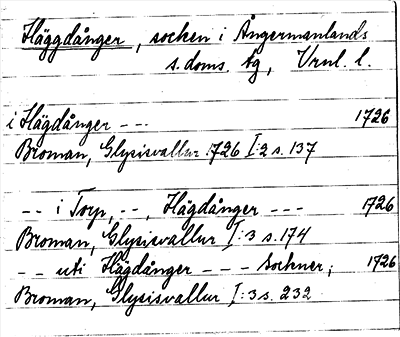 Häggdånger, socken i Ångermanlands
s. doms. tg, Vrnl. l.
i Hägdånger --- 1726
Broman, Glysisvallur 1726 I:2 s. 137
-- i Torp, --, Hägdånger --- 1726
Broman, Glysisvallur I:3 s. 174
-- uti Hägdånger --- Sockner; 1726
Broman, Glysisvallur I:3 s. 232